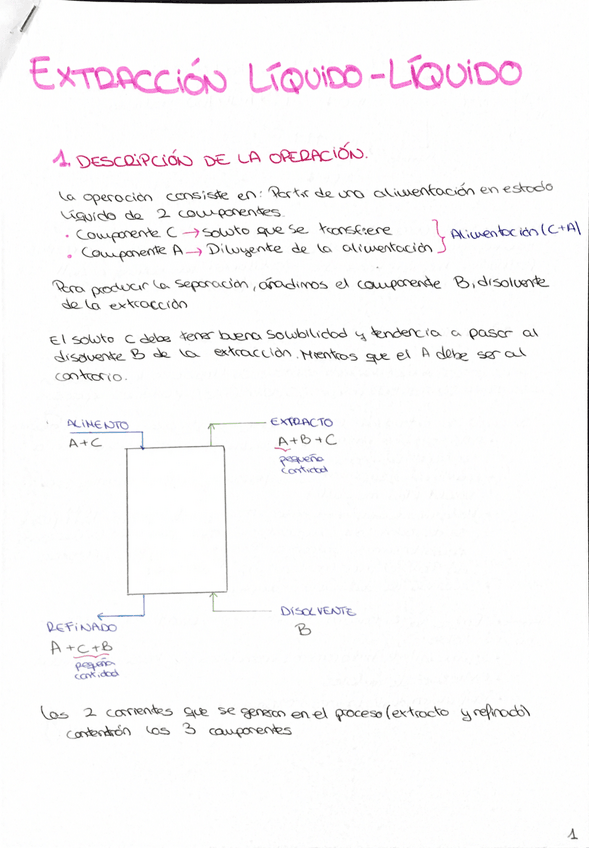 EXTRACCIÓN LÍQUIDO-LÍQUIDO
1. DESCRIPCIÓN DE LA OPERACIÓN.
La operación consiste en: Partir de una alimentación en estado
líquido de 2 componentes.
· Componente C → soluto que se transfiere
· Componente A → Diluyente de la alimentación
Alimentación (C+A)
Para producir la separación, añadimos el componente B, disolvente
de la extracción
El soluto C debe tener buena solubilidad y tendencia a pasar al
disolvente B de la extracción. Mientras que el A debe ser al
contrario.
ALIMENTO
A+C
EXTRACTO
A+B+C
pequeña
cantidad
REFINADO
A+C+B
pequeña
cantidad
DISOLVENTE
B
Las 2 corrientes que se generan en el proceso (extracto y refinado)
contendrán los 3 componentes
1